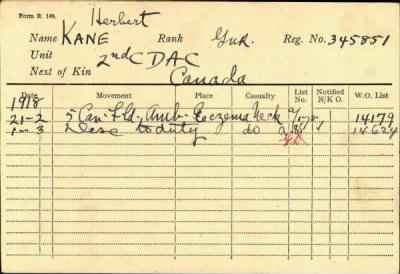 Form R. 149.
Herbert
Name KANE Rank Gnr. Reg. No. 345851
Unit 2nd C DAC
Next of Kin Canada
Date Movement Place Casualty List No. Notified N/K O. W.O. List
1918
21-2 5 Can. Fld. Amb. Eczema Neck 14179
1-3 to duty do 14624